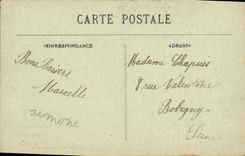 CARTE POSTALE
CORRESPONDANCE
ADRESSE
Bons baisers
Marcelle
Simone
Madame Chapuis
8 rue Valentine
Bobigny
Seine